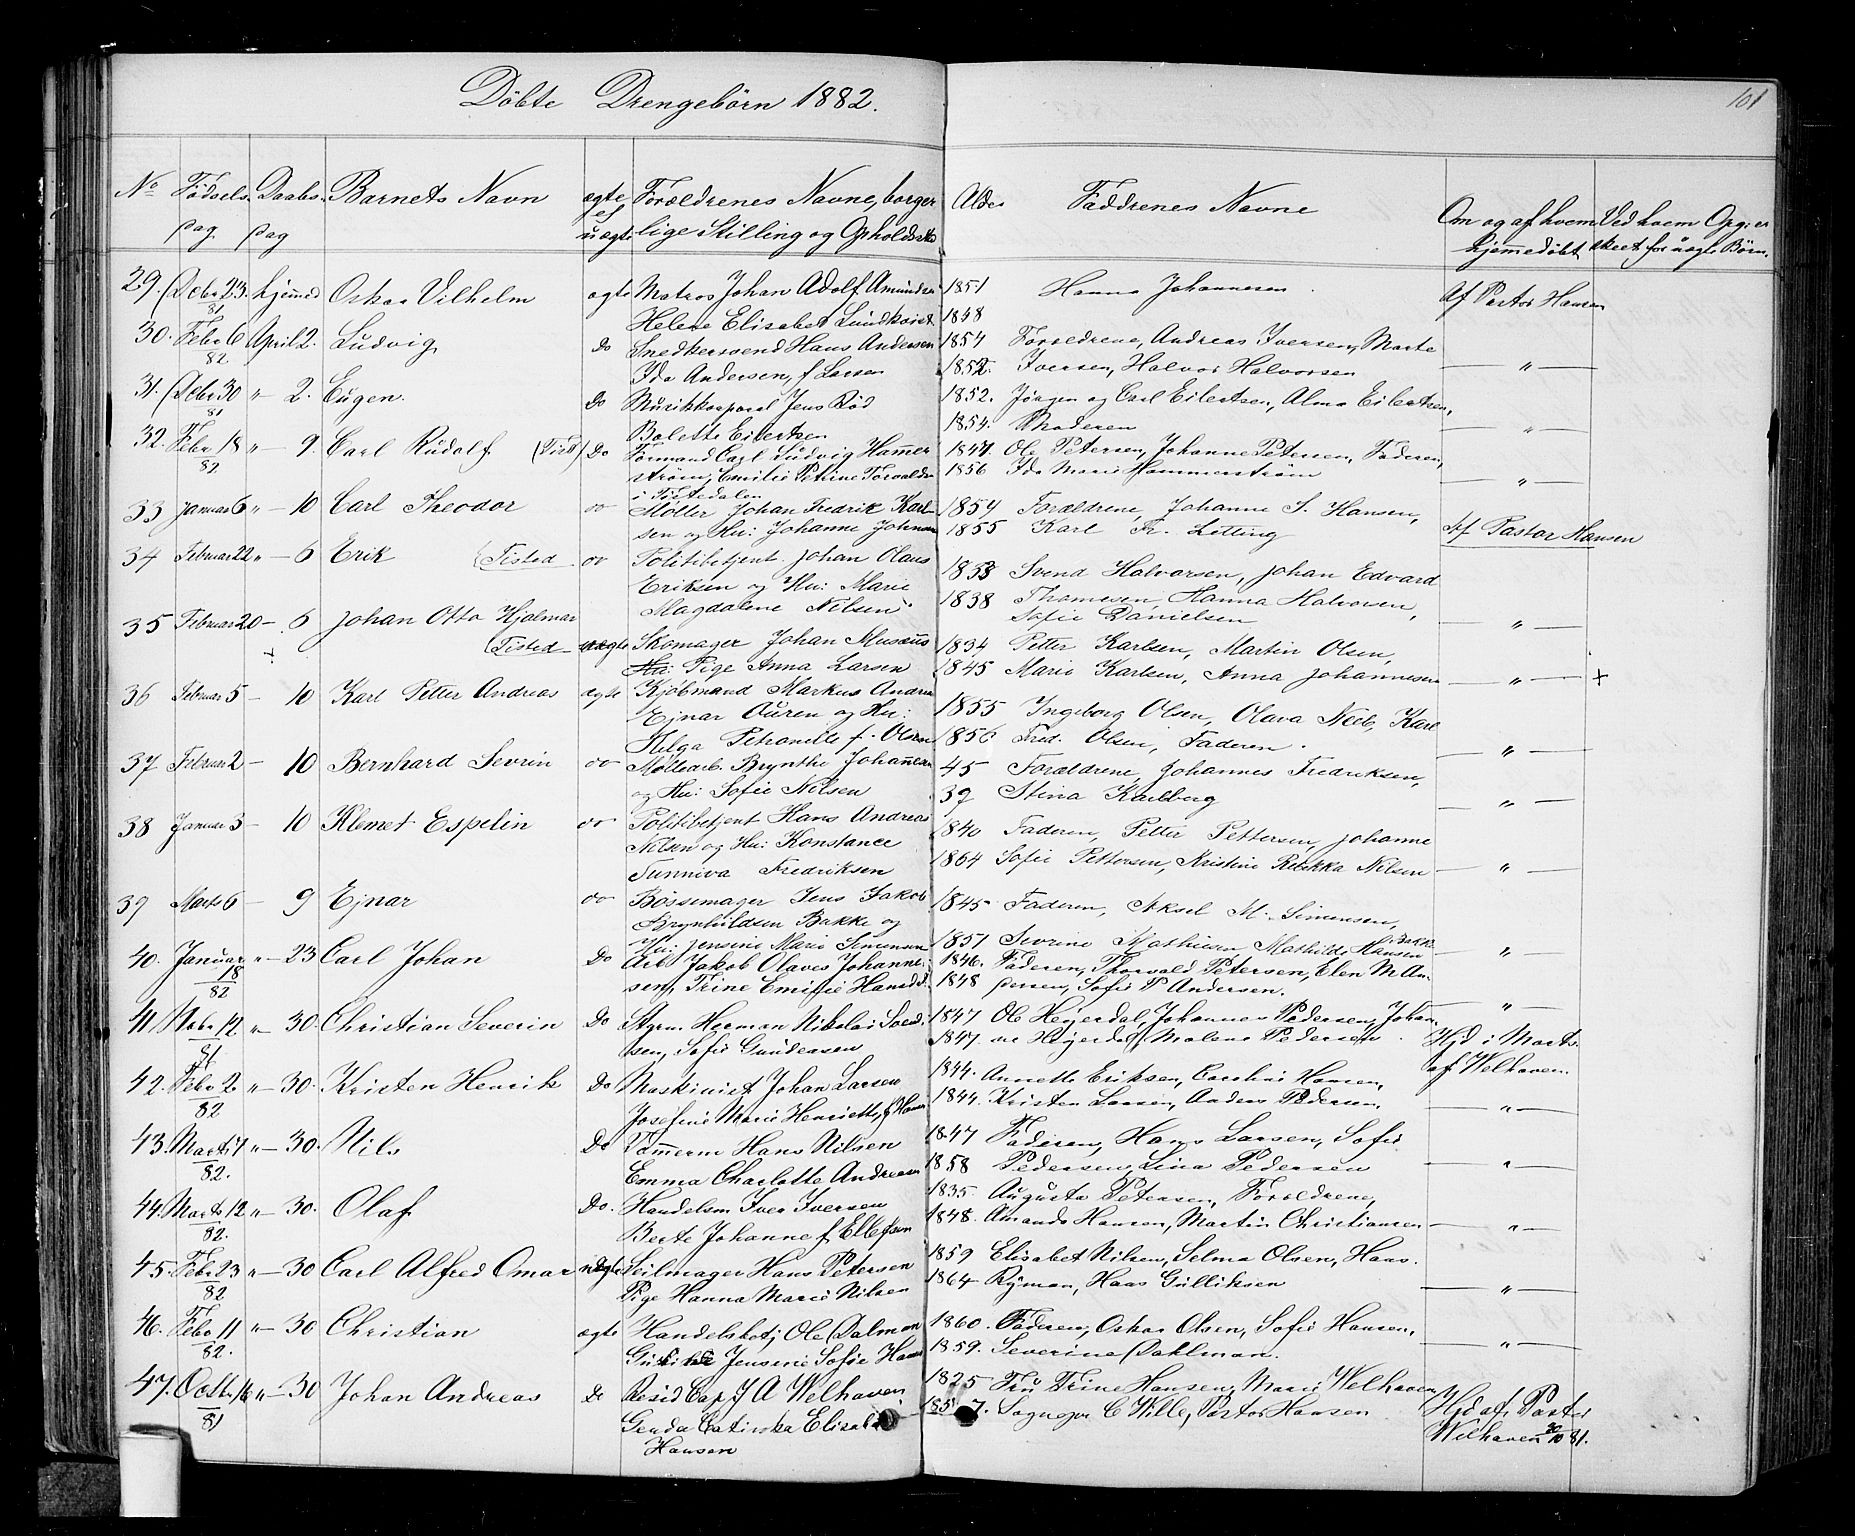 Döbte Drengebörn 1882.
101
No Fødsels- Daabs- Barnets Navn ægte Forældrenes Navne, borger Alder Faddrenes Navne Om og af hvem Ved hvem Opgi er
dag dag el uægte lige Stilling og Opholdsste hjemmedöbt skeet for uægte Börn.
29. Decbr 23. 81 hjemmed Oskar Vilhelm ægte Matros Johan Adolf Amundsen 1851 Hanna Johannesen. Af Pastor Hansen
Helene Elisabet Lundkvist 1848
30. Febr 6 82 April 2. Ludvig Do Snedkersvend Hans Andersen 1854 Forældrene, Andreas Iversen, Marte
Ida Andersen, f Larsen 1852. Iversen, Halvor Halvorsen — " —
31. Decbr 30 81 " — 2. Eugen. Do Musikkorporal Jens Rød 1852. Jörgen og Carl Eilertsen, Alma Eilertsen,
Bolette Eilertsen 1854. Moderen — " —
32. Febr 18 82 " — 9. Carl Rudolf (Tist) Do Formand Carl Ludvig Hammer 1847. Ole Petersen, Johanne Petersen, Faderen,
ström, Emilie Petrine Torvalds 1856 Ida Marie Hammerström — " —
i Tistedalen
33 Januar 6 " — 10 Carl Theodor do Möller Johan Fredrik Karl- 1854 Forældrene, Johanne S. Hansen,
sen og Hu: Johanne Johnsen 1855 Karl Fr. Letting Af Pastor Hansen
34 Februar 22 " — 6 Erik (Tisted do Politibetjent Johan Olaus
Eriksen og Hu: Marie 1853 Svend Halvorsen, Johan Edvard
Magdalene Nilsen. 1838 Thomesen, Hanna Halvorsen,
Sofie Danielsen — " —
35 Februar 20 — 6 Johan Otto Hjalmar
+ (Tisted uægte Skomager Johan Musæus 1834 Petter Karlsen, Martin Olsen,
Hu: Pige Anna Larsen 1845 Marie Karlsen, Anna Johannesen — " — +
36 Februar 5 — 10 Karl Petter Andreas ægte Kjöbmand Markus Andrea
Ejnar Ouren og Hu: 1855 Ingeborg Olsen, Olava Neeb, Karl
Helga Petronille f. Olsen 1856 Fred. Olsen, Faderen. — " —
37 Februar 2 — 10 Bernhard Sevrin do Möllearb. Brynthe Johannesen 45 Forældrene, Johannes Fredriksen,
og Hu: Sofie Nilsen 39 Stina Karlberg — " —
38 Januar 3 — 10 Klemet Espelin do Politibetjent Hans Andreas 1840 Faderen, Petter Pettersen, Johanne
Nilsen og Hu: Konstance 1864 Sofie Pettersen, Kristine Rebekka Nilsen — " —
Sunniva Fredriksen
39 Marts 6 — 9 Ejnar do Bössemager Jens Jakob 1845 Faderen, Aksel M. Simensen,
Brynhildsen Bakke og
Hu: Jensine Marie Simensen 1857 Sevrine Mathiesen, Mathilde Hansen Bakke — " —
40. Januar 18 82 " — 23 Carl Johan Do Arb Jakob Olaves Johanne- 1846. Faderen, Thorvald Petersen, Elen M An-
sen, Trine Emilie Hansd 1848 dersen, Sofie P Andersen. — " —
41 Nobr 12 81 " — 30. Christian Severin Do Styrm. Herman Nikolai Svend 1847 Ole Heyerdal, Johannes Pedersen, Johan-
sen, Sofie Gundersen 1847. ne Heyerdal, Malene Pedersen. Hjd i Marts
af Welhaven.
42. Febr 2. 82 " — 30. Kristen Henrik Do Maskinist Johan Larsen 1844. Annette Eriksen, Caroline Hansen,
Josefine Marie Henriette, f Hansen 1844. Kristen Larsen, Anders Pedersen, — " —
43. Marts 7 82. " — 30. Nils Do Tömmerm Hans Nilsen 1847 Faderen, Hans Larsen, Sofie
Emma Charlotte Andreasen 1858 Pedersen, Lina Pedersen — " —
44. Marts 12 82. " — 30. Olaf Do. Handelsm Iver Iversen 1835. Augusta Petersen, Forældrene,
Berte Johanne f Ellefsen 1848. Amanda Hansen, Martin Christiansen — " —
45. Febr 23 82 " — 30 Carl Alfred Omar uægte Seilmager Hans Petersen 1859 Elisabet Nilsen, Selma Olsen, Haas.
Pige Hanna Marie Nilsen 1864 Ryman, Haas Gulliksen — " —
46. Febr 11 82. " — 30 Christian ægte Handelsbetj Ole Dalman 1860. Faderen, Oskar Olsen, Sofie Hansen,
Jensine Sofie Hansen 1859. Severine Dahlman. — " —
47. Octbr 16 81 " — 30 Johan Andreas Do Resid Cap J A Welhaven 1825 Fru Trine Hansen, Marie Welhaven, Hjd af Pastor
Genda Catinka Elisabet 1857. Sognepr C Wille, Pastor Hansen Welhaven 20/10 81.
Hansen